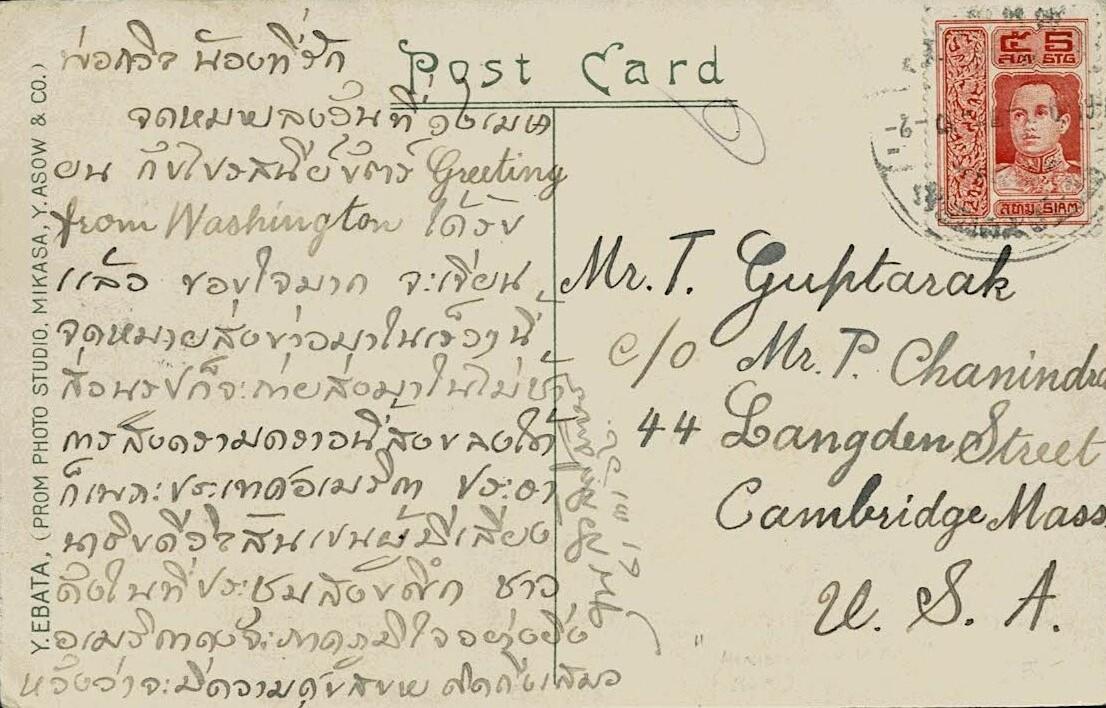 Post Card
พ่อกวิล น้องที่รัก
จดหมายลงวันที่ ๑๖ เมษา
ยน กับไปรสนีย์บัตร์ Greeting
from Washington ได้รับ
แล้ว ขอบใจมาก จะเขียน
จดหมายส่งข่าวมาในเร็วๆ นี้
ส่วนรูปก็จะถ่ายส่งมาในไม่ช้า
การสงครามคราวนี้สงบลงได้
ก็เพราะประเทศอเมริกา ประธา
นาธิบดีวิลสันเปนผู้มีเสียง
ดังในที่ประชุมสงบศึก ชาว
อเมริกาคงจะภาคภูมิใจอย่างยิ่ง
หวังว่าจะมีความศุขสบาย
Y. EBATA, (PROM PHOTO STUDIO, MIKASA, Y. ASOW & CO.)
๕ 5
สต STG
สยาม SIAM
Mr. T. Guptarak
c/o Mr. P. Chanindra
44 Langden Street
Cambridge Mass
U. S. A.